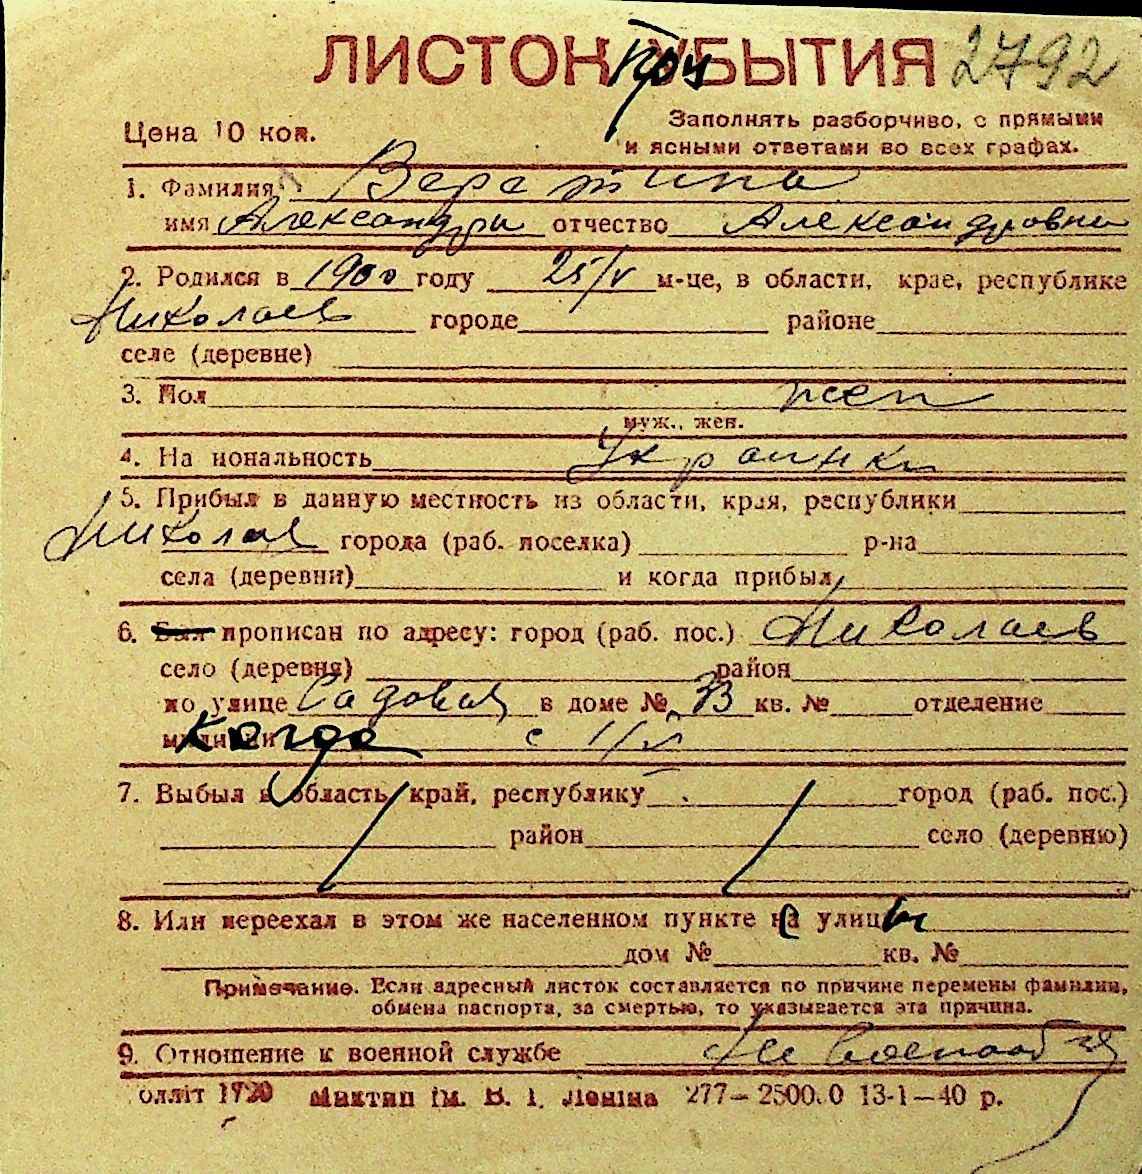 ЛИСТОК УБЫТИЯ 2792
При
Цена 10 коп.
Заполнять разборчиво, с прямыми
и ясными ответами во всех графах.
1. Фамилия
имя Александра отчество Александровна
2. Родился в 1900 году 25/V м-це, в области, крае, республике
Николаев городе районе
селе (деревне)
3. Пол жен
муж., жен.
4. На иональность Украинка
5. Прибыл в данную местность из области, края, республики
Николаев города (раб. поселка) р-на
села (деревни) и когда прибыл
6. Был прописан по адресу: город (раб. пос.) Николаев
село (деревня) район
по улице Садовая в доме № 33 кв. № отделение
милиции Когда с
7. Выбыл в область, край, республику город (раб. пос.)
район село (деревню)
8. Или переехал в этом же населенном пункте с улицы
дом № кв. №
Примечание. Если адресный листок составляется по причине перемены фамилии,
обмена паспорта, за смертью, то указывается эта причина.
9. Отношение к военной службе Не военнооб
олліт 1720 Миктип ім. В. І. Леніна 277—2500.0 13-1—40 р.